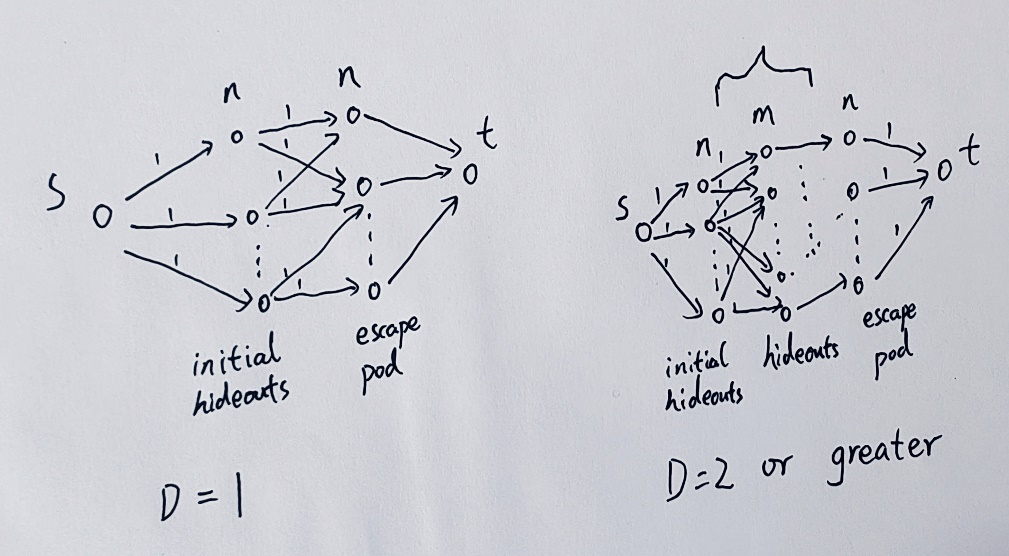 n
n
1
1
1
1
1
1
1
1
s
t
initial
hideouts
escape
pod
D = 1
n
m
n
1
1
1
1
1
1
1
s
t
initial
hideouts
hideouts
escape
pod
D=2 or greater